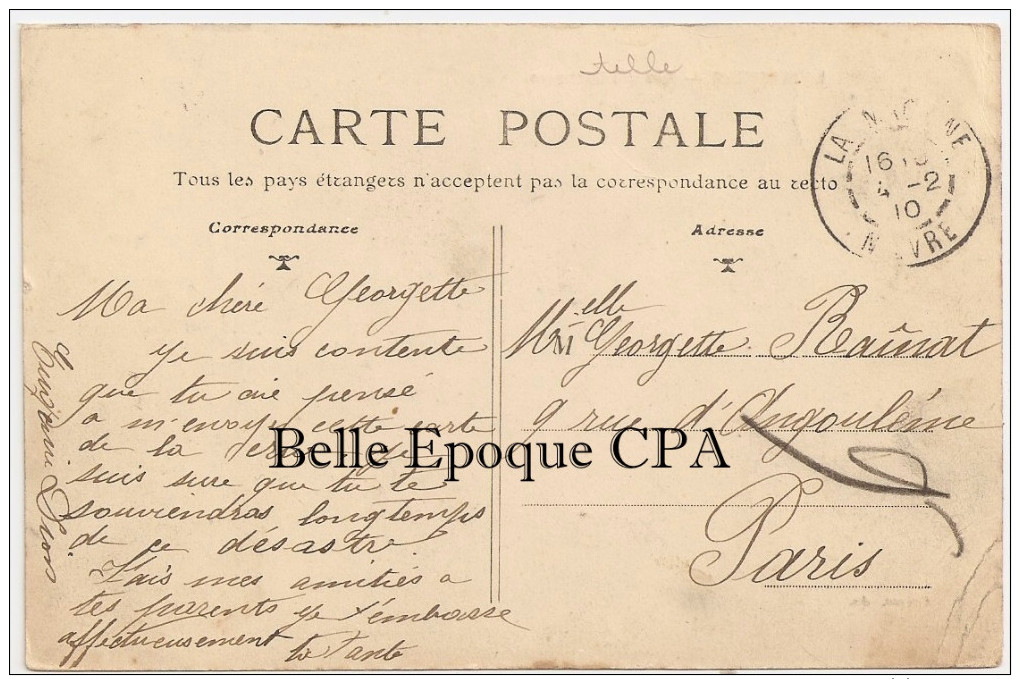 telle
CARTE POSTALE
Tous les pays étrangers n'acceptent pas la correspondance au recto
LA NE
16
4 -2
10
NIÈVRE
Correspondance
Adresse
Ma chère Georgette
je suis contente
que tu aie pensé
a m'envoyer cette carte
de la
suis sure que tu te
souviendras longtemps
de ce désastre
Fais mes amitiés a
tes parents je t'embrasse
affectueusement
ta Tante
Melle Georgette Raûnat
9 rue d'Angoulême
Paris
Belle Epoque CPA